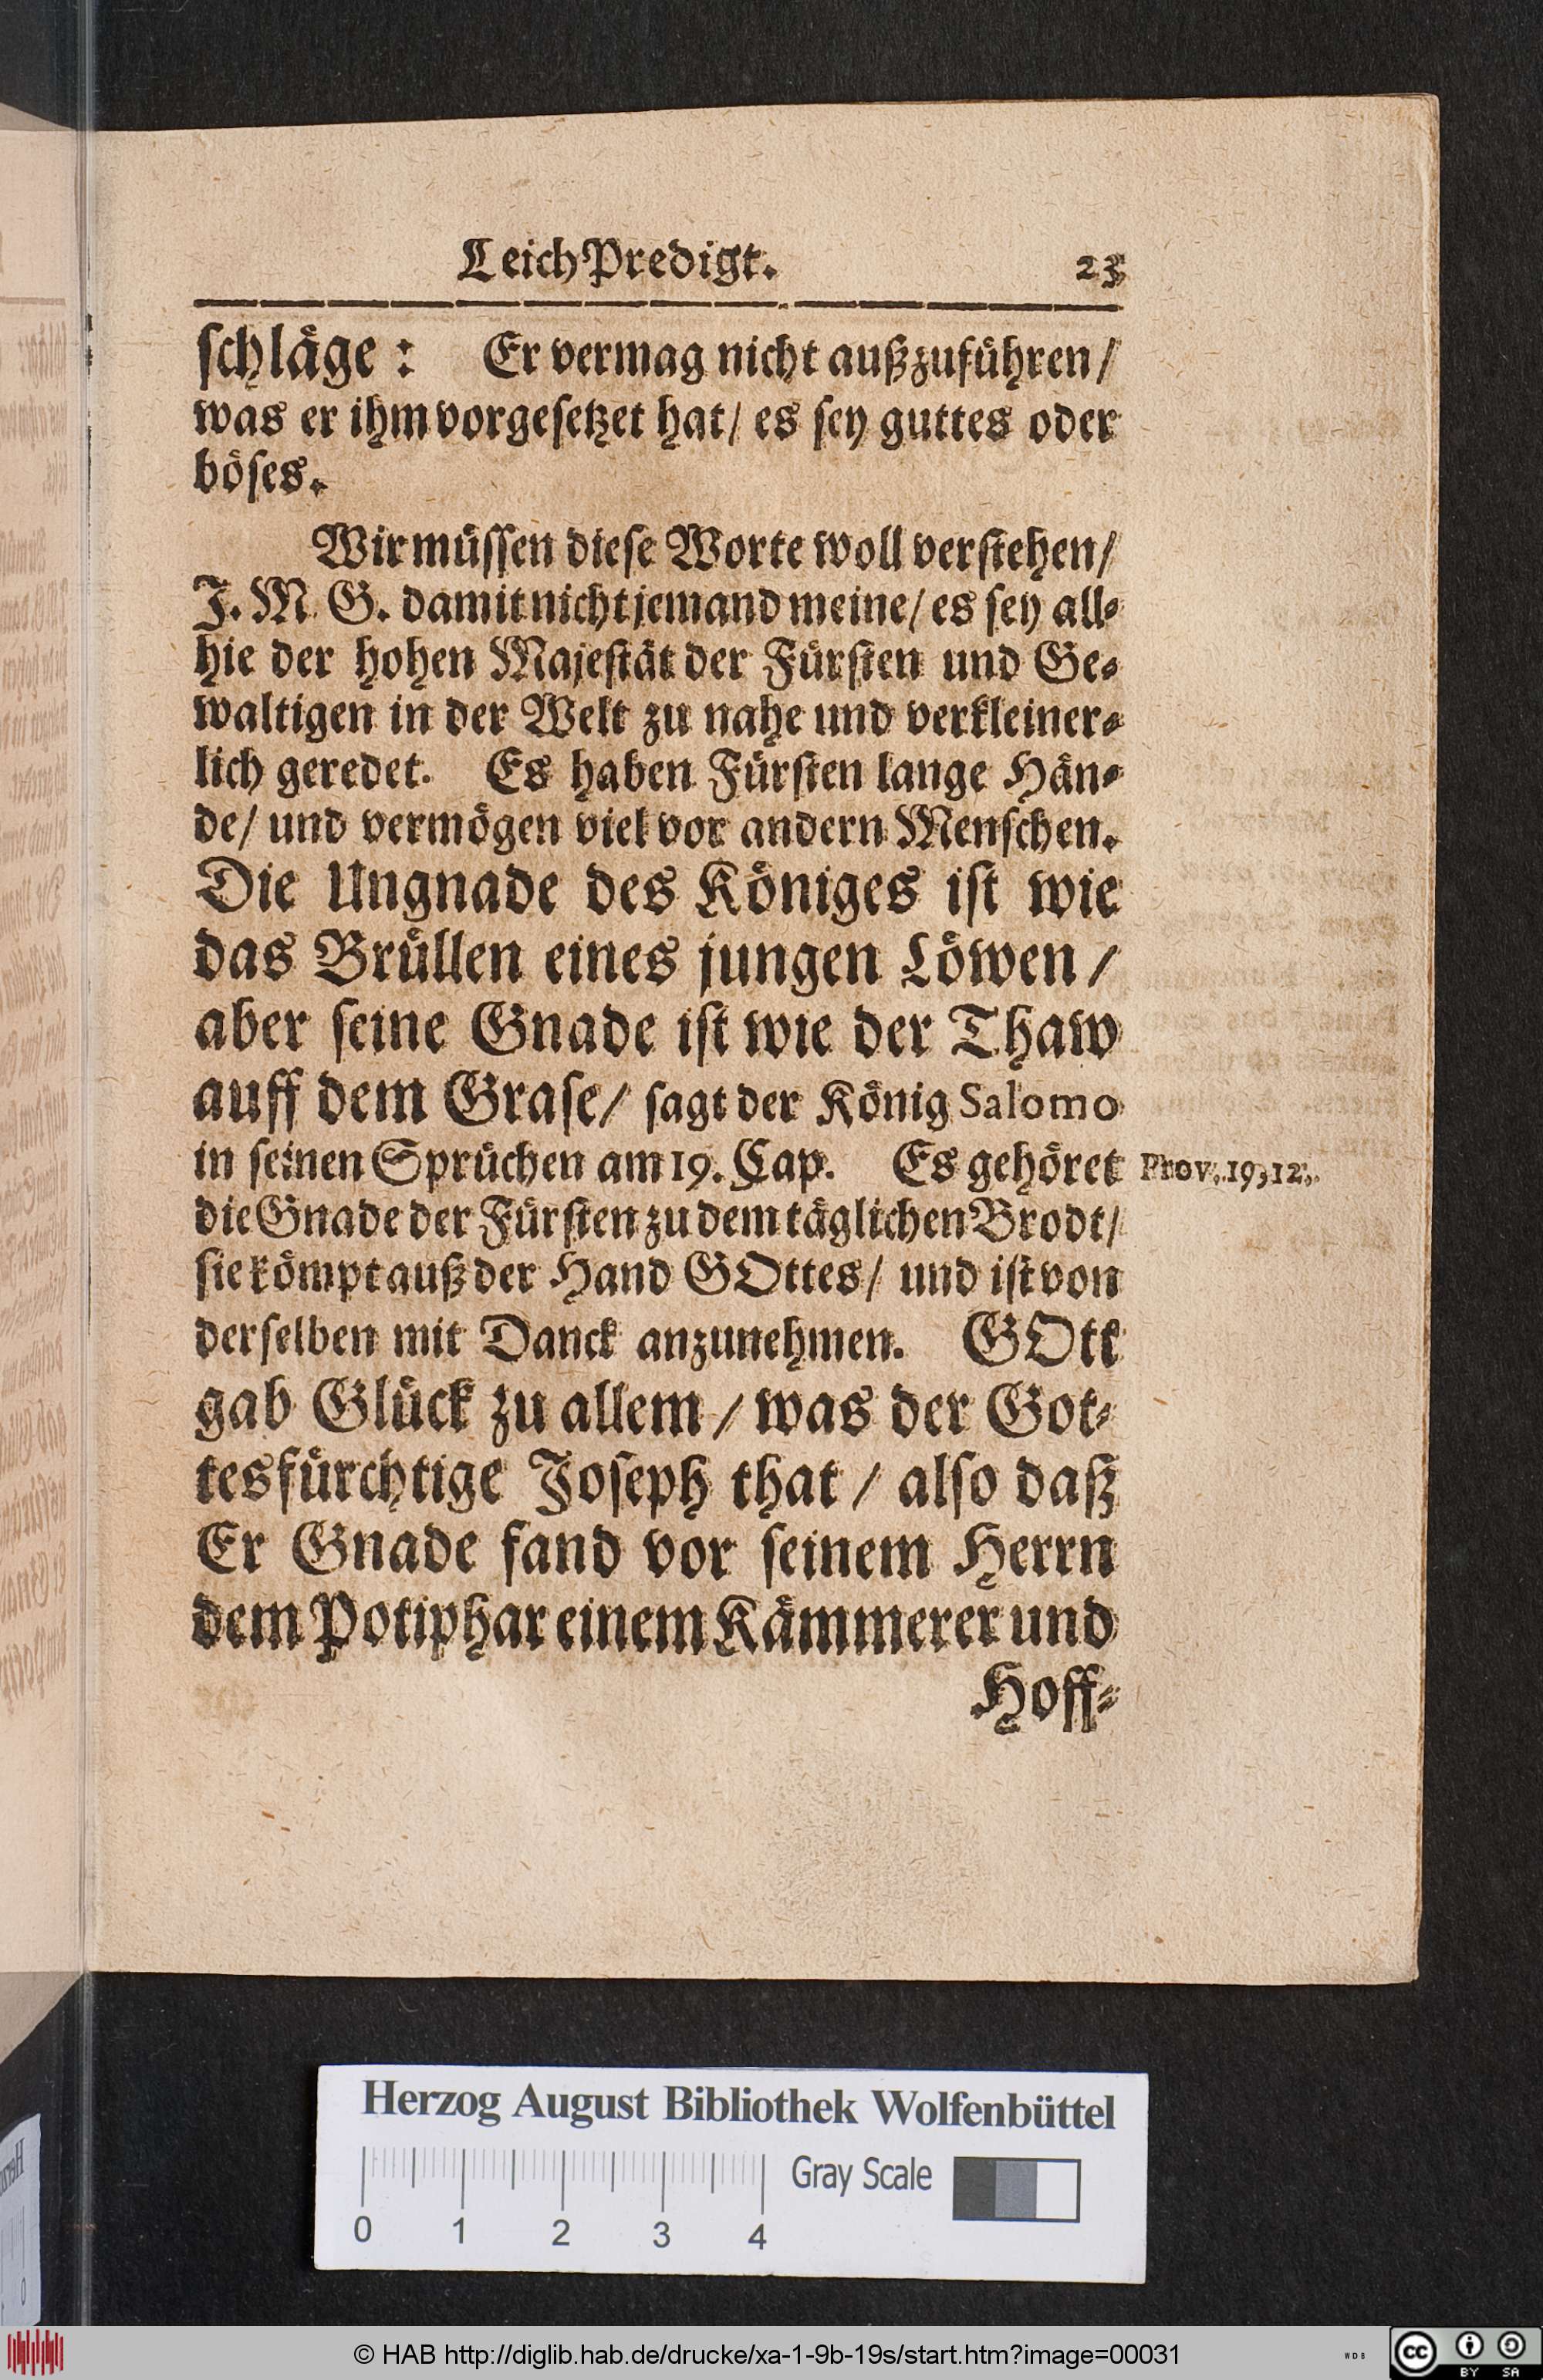 LeichPredigt. 23
ſchläge: Er vermag nicht außzuführen/
was er ihm vorgeſetzet hat/ es ſey guttes oder
böſes.
Wir müſſen dieſe Worte woll verſtehen/
J. M. G. damit nicht jemand meine/ es ſey all⸗
hie der hohen Majeſtät der Fürſten und Ge⸗
waltigen in der Welt zu nahe und verkleiner⸗
lich geredet. Es haben Fürſten lange Hän⸗
de/ und vermögen viel vor andern Menſchen.
Die Ungnade des Königes iſt wie
das Brüllen eines jungen Löwen/
aber ſeine Gnade iſt wie der Thaw
auff dem Graſe/ ſagt der König Salomo
in ſeinen Sprüchen am 19. Cap. Es gehöret
Prov. 19, 12.
die Gnade der Fürſten zu dem täglichen Brodt/
ſie kömpt auß der Hand GOttes/ und iſt von
derſelben mit Danck anzunehmen. GOtt
gab Glück zu allem/ was der Got⸗
tesfürchtige Joſeph that/ alſo daß
Er Gnade fand vor ſeinem Herrn
dem Potiphar einem Kämmerer und
Hoff⸗
Herzog August Bibliothek Wolfenbüttel
Gray Scale
0 1 2 3 4
© HAB http://diglib.hab.de/drucke/xa-1-9b-19s/start.htm?image=00031
WDB
cc BY SA